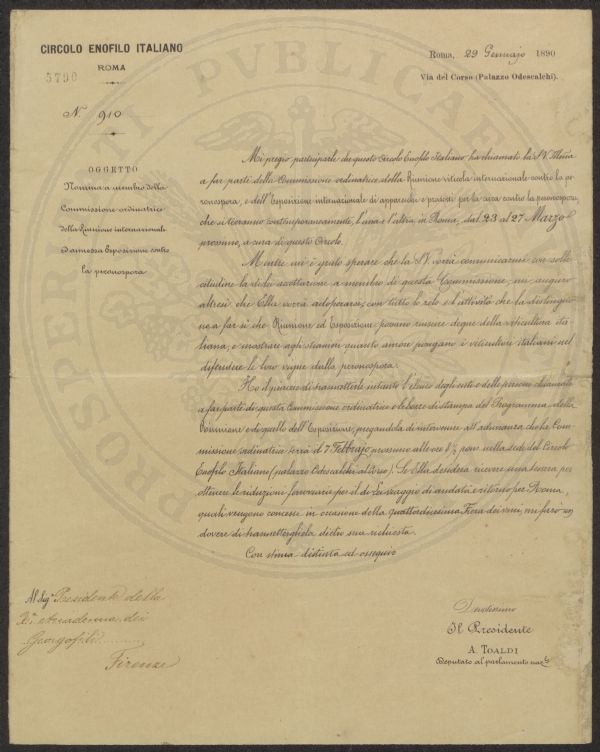 CIRCOLO ENOFILO ITALIANO
ROMA
5790
N. 910
OGGETTO
Nomina a membro della
Commissione ordinatrice
della Riunione internazionale
ed annessa Esposizione contro
la peronospora
Roma, 29 Gennajo 1890
Via del Corso (Palazzo Odescalchi).
Mi pregio parteciparle che questo Circolo Enofilo Italiano, ha chiamato la S.V. Illma
a far parte della Commissione ordinatrice della Riunione viticola internazionale contro la pe-
ronospora, e dell'Esposizione internazionale di apparecchi e prodotti per la cura contro la peronospora
che si terranno contemporaneamente, l'una e l'altra in Roma, dal 23 al 27 Marzo
prossimo, a cura di questo Circolo.
Mentre mi è grato sperare che la S.V. vorrà comunicarmi con solle-
citudine la di lei accettazione a membro di questa Commissione, mi auguro
altresì che Ella vorrà adoperarsi, con tutto lo zelo e l'attività che la distinguo-
no a far sì che Riunione ed Esposizione possano riuscire degne della viticoltura ita-
liana, e mostrare agli stranieri quanto amore pongano i viticultori italiani nel
difendere le loro vigne dalla peronospora.
Ho il piacere di trasmetterle intanto l'elenco degli enti e delle persone chiamate
a far parte di questa Commissione ordinatrice e le bozze di stampa del Programma della
Riunione e di quello dell'Esposizione, pregandola di intervenire all'adunanza che la Com-
missione ordinatrice terrà il 7 Febbrajo prossimo alle ore 8½ pom. nella sede del Circolo
Enofilo Italiano (palazzo Odescalchi al Corso). Se Ella desidera ricevere una tessera per
ottenere le riduzioni ferroviarie per il di Lei viaggio di andata e ritorno per Roma,
quali vengono concesse in occasione della quattordicesima Fiera dei vini, mi farò un
dovere di trasmettergliela dietro sua richiesta.
Con stima distinta ed ossequio
Al Sig. Presidente della
R. Accademia dei
Georgofili
Firenze
Devotissimo
Il Presidente
A. TOALDI
Deputato al parlamento naz.
PROSPERITATI PVBLICAE